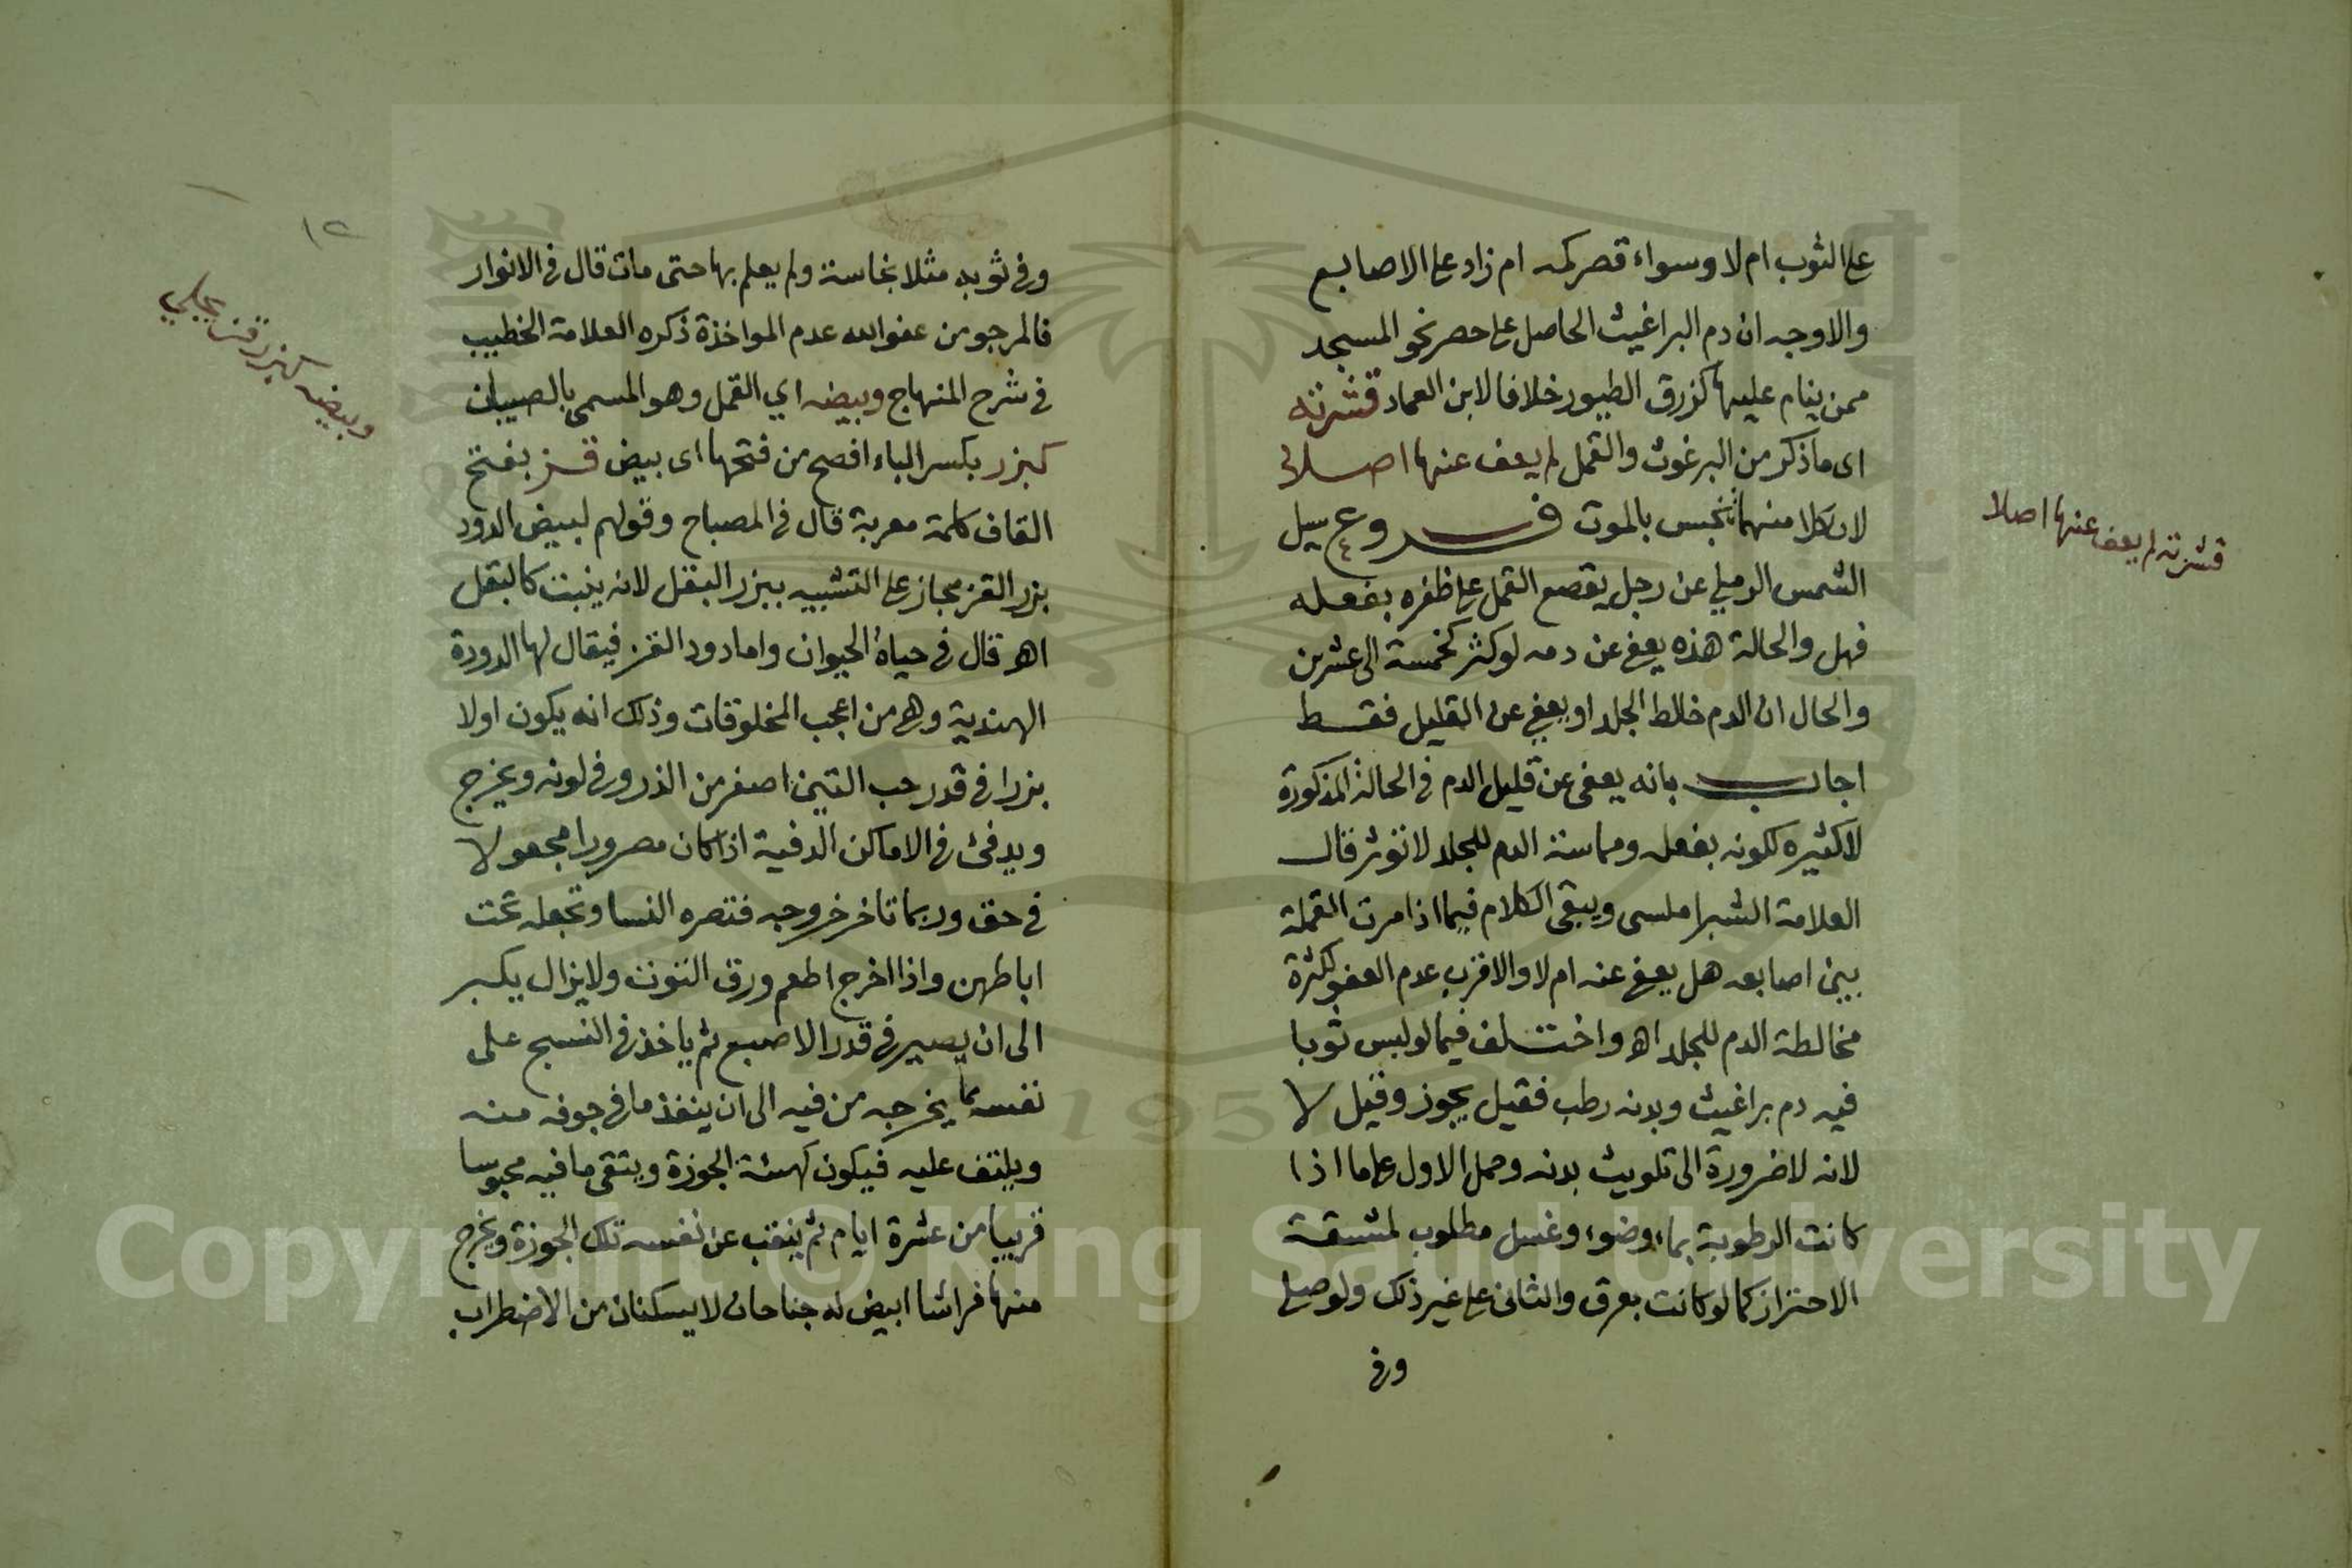 على الثوب ام لا وسواء قصر كمه ام زاد على الاصابع
والاوجه ان دم البراغيث الحاصل على حصر نحو المسجد
ممن ينام عليها كزرق الطيور خلافا لابن العماد قشرته
اى ما ذكر من البرغوث والقمل لم يعف عنها اصلا
لان كلا منهما نجس بالموت فروع سيل
الشمس الرملي عن رجل يقصع القمل على ظفره بفعله
فهل والحالة هذه يعفى عن دمه لو كثر كخمسة الى عشرين
والحال ان الدم خالط الجلد او يعفى عن القليل فقط
اجاب بانه يعفى عن قليل الدم في الحالة المذكورة
لا كثيره لكونه بفعله ومماسة الدم للجلد لا تؤثر قال
العلامة الشبراملسى ويبقى الكلام فيما اذا مرت القملة
بين اصابعه هل يعفى عنه ام لا والاقرب عدم العفو لكثرة
مخالطة الدم للجلد اه واختلف فيما لو لبس ثوبا
فيه دم براغيث وبدنه رطب فقيل يجوز وقيل لا
لانه لا ضرورة الى تلويث بدنه وحمل الاول على ما اذا
كانت الرطوبة بماء وضوء وغسل مطلوب لمشقة
الاحتراز كما لو كانت بعرق والثانى على غير ذلك ولو صلى
وفى
قشرته لم يعف عنها اصلا
١٢
وفى ثوبه مثلا نجاسة ولم يعلم بها حتى مات قال في الانوار
فالمرجو من عفو الله عدم المواخذة ذكره العلامة الخطيب
في شرح المنهاج وبيضه اي القمل وهو المسمى بالصيبان
كبزر بكسر الباء افصح من فتحها اى بيض قز بفتح
القاف كلمة معربة قال في المصباح وقولهم لبيض الدود
بزر القز مجاز على التشبيه ببزر البقل لانه ينبت كالبقل
اه قال في حياة الحيوان واما دود القز فيقال لها الدودة
الهندية وهى من اعجب المخلوقات وذلك انه يكون اولا
بزرا في قدر حب التين اصفر من الذر وفى لونه ويخرج
ويدفئ في الاماكن الدفية اذا كان مصرورا مجعولا
في حق وربما تاخر خروجه فتصره النسا وتجعله تحت
اباطهن واذا اخرج اطعم ورق التوت ولا يزال يكبر
الى ان يصير في قدر الاصبع ثم ياخذ في النسج على
نفسه بما يخرجه من فيه الى ان ينفذ ما في جوفه منه
ويلتف عليه فيكون كهيئة الجوزة ويبقى ما فيه محبوسا
قريبا من عشرة ايام ثم ينقب عن نفسه تلك الجوزة ويخرج
منها فراشا ابيض له جناحان لا يسكنان من الاضطراب
وبيضه كبزر قز
Copyright © King Saud University
1957